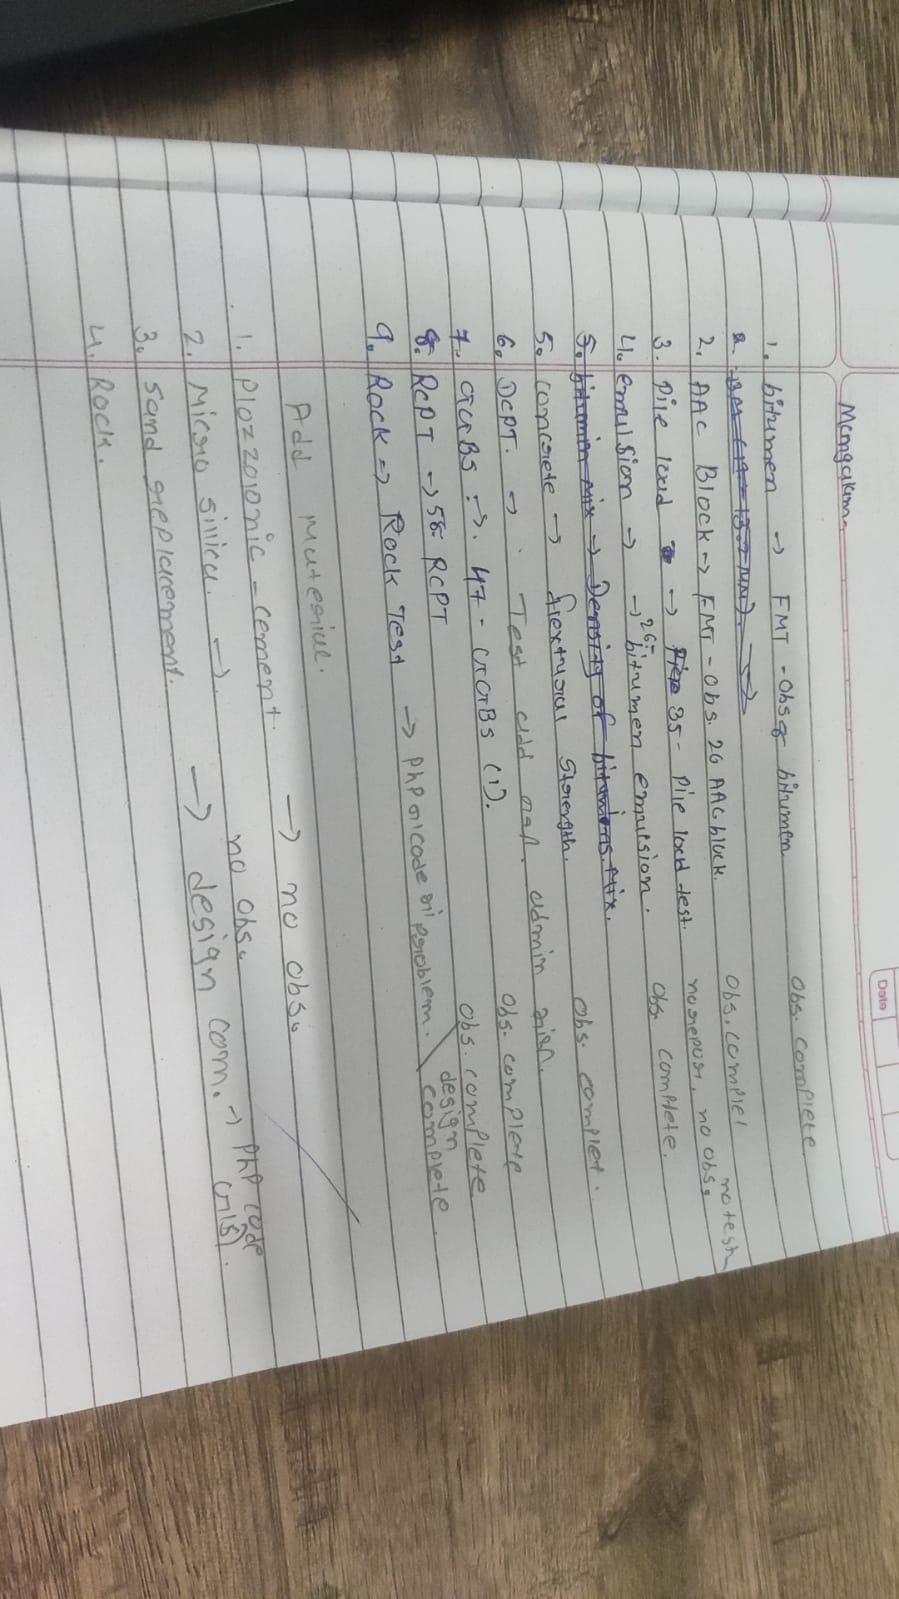 Date
Mcmgalam.
1. bitumen → FMT - Obs 8 bitumen Obs. Complete
2. AAC Block → FMT - Obs. 26 AAC block. Obs. complet
3. Pile load → 35 - Pile load test. no repost, no obs, no test
4. emulsion → → 26- bitumen emulsion. Obs. complete.
5. bitumin mix → Density of bitumins. Mix.
5. concrete → flextural Strength. Obs. complet.
6. DCPT. → Test add admin
7. GGBS → 47 - GGBS (1). Obs. complete
8. RCPT → 58- RCPT Obs. complete
design complete
9. Rock → Rock Test → PhP code problem.
Add Material.
1. Plozzolonic - cement. → no obs.
2. Micro sillica. → no obs.
3. Sand replacement. → design com. → PhP code
4. Rock.